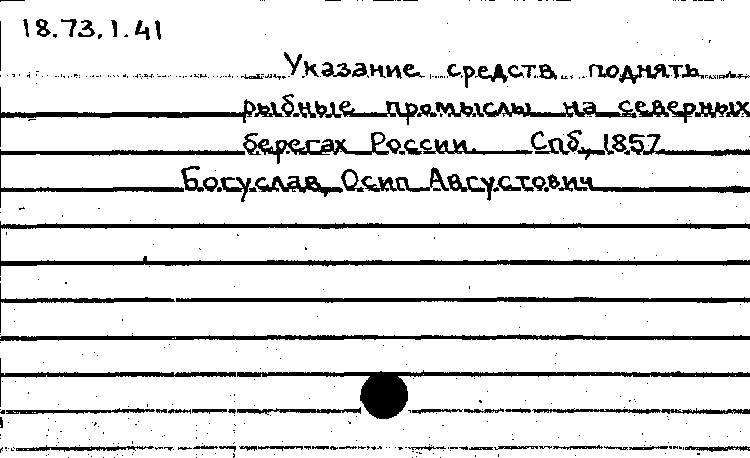 18.73.1.41
Указание средств поднять
рыбные промыслы на северных
берегах России. Спб., 1857
Богуслав, Осип Августович